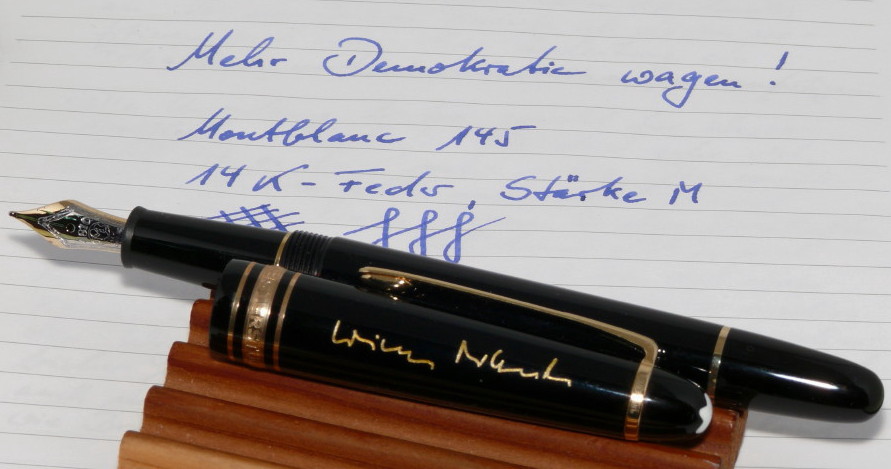 Mehr Demokratie wagen!
Montblanc 145
14 K - Feder, Stärke M
Willy Brandt